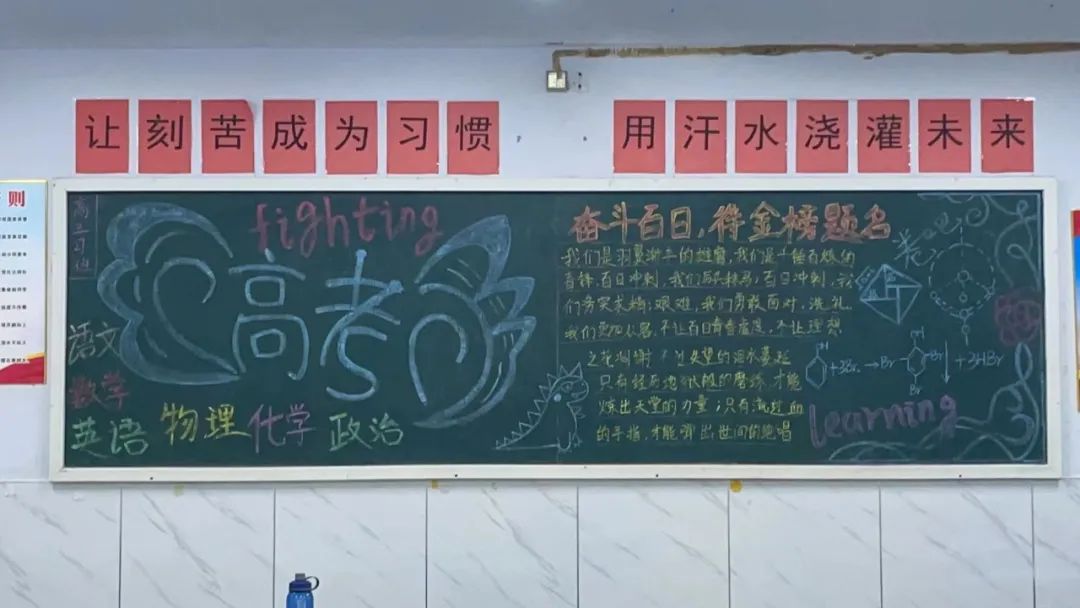 让刻苦成为习惯
用汗水浇灌未来
则
fighting
高考
语文
数学
英语
物理
化学
政治
奋斗百日，待金榜题名
我们是羽翼渐丰的雄鹰，我们是千锤百炼的
百日冲刺，我们厉兵秣马，百日冲刺，我
们务实求精；艰难，我们勇敢面对，洗礼
我们更加心容，不让百日青春虚度，不让理想
之花凋谢 不让失望的泪水蔓延
只有经历地狱般的磨练，才能
炼出天堂的力量；只有流过血
的手指，才能弹出世间的绝唱
+3Br₂ → Br OH Br Br ↓ +3HBr
learning